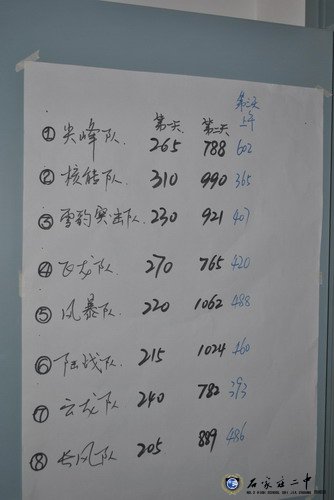 第一天 第二天 第三天上午
①尖峰队. 265 788 602
②核能队. 310 990 365
③雪豹突击队. 230 921 407
④飞龙队. 270 765 420
⑤风暴队. 220 1062 488
⑥陆战队. 215 1024 460
⑦云龙队 240 782
⑧长风队. 205 889 486
石家庄二中